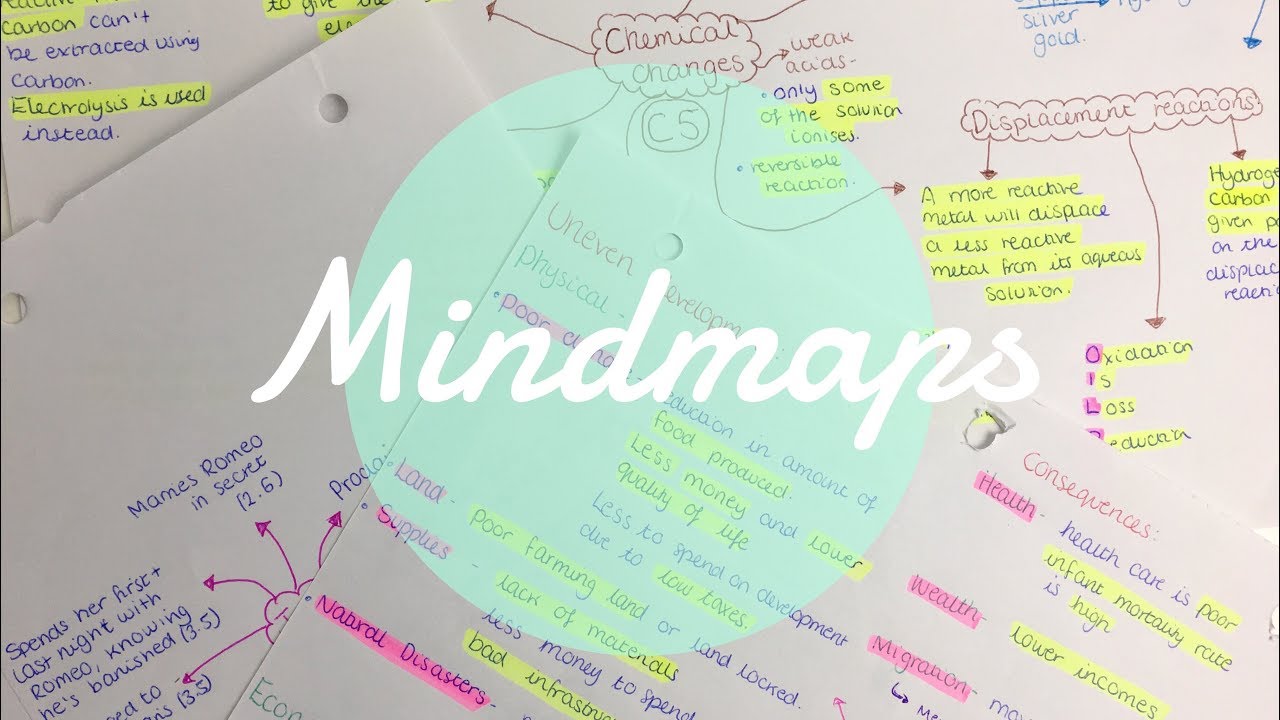 carbon can't
be extracted using
carbon.
Electrolysis is used
instead.
to give the
Chemical
changes
C5
weak
acids-
• only some
of the solution
ionises.
• reversible
reaction.
silver
gold.
Displacement reactions
A more reactive
metal will displace
a less reactive
metal from its aqueous
solution.
Hydroge
carbon
given
on the
displac
reactio
Oxidation
Is
Loss
Reduction
Mindmaps
Uneven Developm
Physical -
• Poor
reduction in amount of
food produced.
Less money and lower
quality of life
• Land - Poor farming land or land locked.
Less to spend on development
due to low taxes.
• Supplies - lack of materials
less money to spend
• Natural Disasters - bad infrastruc
Econ
Consequences:
Health - health care is poor
infant mortality rate
is high
Wealth - lower incomes
Migration -
Marries Romeo
in secret
(2.6)
Procla
Spends her first +
last night with
Romeo, knowing
he's banished (3.5)
(3.5)